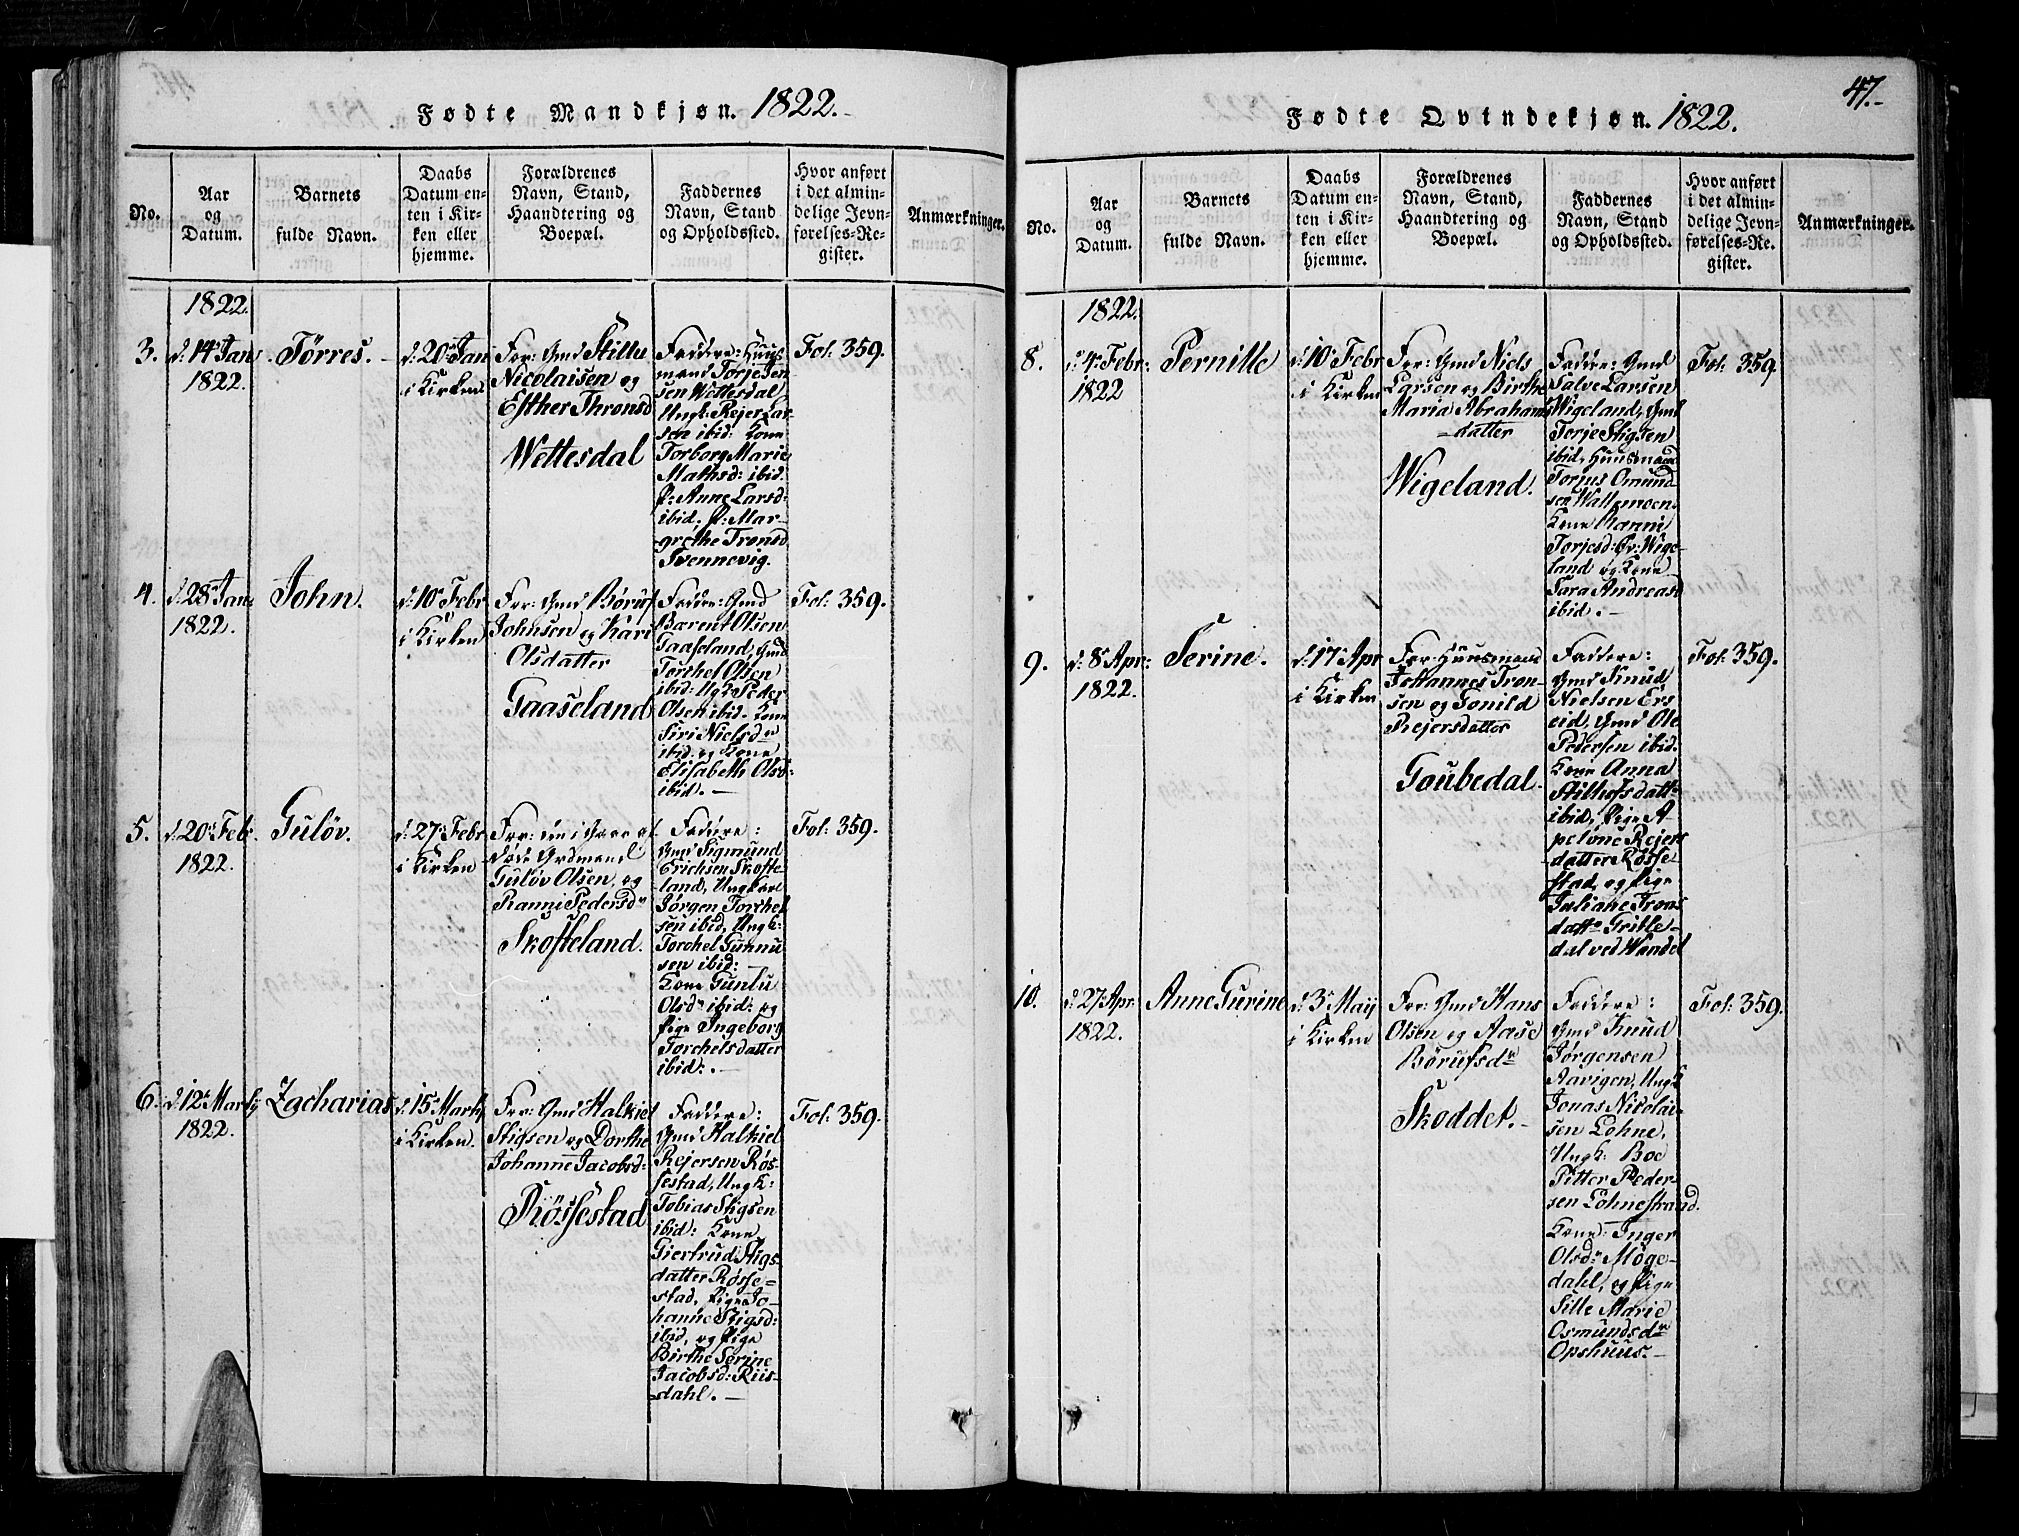 Fødte Mandkjøn. 1822.
No.
Aar
og
Datum.
Barnets
fulde Navn.
Daabs
Datum en-
ten i Kir-
ken eller
hjemme.
Forældrenes
Navn, Stand,
Haandtering og
Boepæl.
Faddernes
Navn, Stand
og Opholdssted.
Hvor anført
i det almin-
delige Jevn-
førelses-Re-
gister.
Anmærkninger.
1822.
3.
d: 14 Jan
1822.
Tørres.
d: 20 Jan
i Kirken
For: Gmd Stillu
Nicolaisen og
Esther Thronsd
Wettesdal
Faddere: Huus
mand Torje Jen
sen Wettesdal
Ungk: Rejer Lar
sen ibid: Kone
Torborg Marie
Mathsd: ibid.
P: Anne Larsd:
ibid. P: Mar-
grethe Tronsd
Tvennevig.
Fol: 359.
4.
d: 28 Jan
1822.
John.
d: 10 Febr
i Kirken
For: Gmd Børuf
Johnsen og Kari
Olsdatter
Gaaseland
Faddere: Gmd
Bærent Olsen
Gaaseland, Gmd
Torchel Olsen
ibid: Ungk Peder
Olsen ibid. Kone
Siri Nielsdr
ibid. og Kone
Elisabeth Olsd:
ibid. -
Fol: 359.
5.
d: 20 Febr
1822.
Guløv.
d: 27 Febr
i Kirken
døde Grdmand
Guløv Olsen, og
Ranni Pedersdr
Skofteland.
Faddere:
Gmd Sigmund
Erichsen Skofte
land, Ungkarl
Jørgen Torchel
sen ibid, Ungk:
Torchel Gunnu
sen ibid: -
Kone Gunlu
Olsdr ibid: og
Pige Ingeborg
Torchelsdatter
ibid: . -
Fol: 359.
6.
d: 12 Martij
1822.
Zacharias
d: 15 Martij
i Kirken.
For: Gmd Halkiel
Stigsen og Dorthe
Johanne Jacobsd:
Røssestad
Faddere:
Gmd Halkiel
Rejersen Røs-
sestad, Ungk:
Tobias Stigsen
ibid: Kone
Giertrud Stigs-
datter Røsse-
stad, Pige Jo-
hanne Stigsd:
ibid, og Pige
Birthe Serine
Jacobsd: Riis-
dahl. -
Fol: 359.
47.
Fødte Qvindekjøn. 1822.
No.
Aar
og
Datum.
Barnets
fulde Navn.
Daabs
Datum en-
ten i Kir-
ken eller
hjemme.
Forældrenes
Navn, Stand,
Haandtering og
Boepæl.
Faddernes
Navn, Stand
og Opholdssted.
Hvor anført
i det almin-
delige Jevn-
førelses-Re-
gister.
Anmærkninger.
1822.
8.
d: 4 Febr:
1822
Pernille
d: 10 Febr
i Kirken
For: Gmd Niels
Larsen og Birthe
Maria Abrahams
-datter
Wigeland.
Faddere: Gmd
Salve Larsen
Wigeland, Gmd
Torje Stigsen
ibid, Huusmand
Torjus Omund
sen Wattemoen
Kone Ranni
Torjesd: Øv: Wige-
land og Kone
Sara Andreasd
ibid. -
Fol: 359.
9.
d: 8 Apr:
1822.
Serine.
d: 17 Apr
i Kirken
For: Huusmand
Johannes Tron-
sen og Tonild
Rejersdatter
Goubedal.
Faddere:
Gmd Knud
Nielsen Ers
eid, Gmd Ole
Pedersen ibid.
Kone Anna
Stilhofsdattr
ibid, Pige A-
pelone Rejers
datter Røsse-
stad, og Pige
Juliane Trons
dattr Grille-
dal ved Mandal
Fol: 359.
10.
d: 27 Apr:
1822.
Anne Gurine
d: 3 Maij
i Kirken
For: Gmd Hans
Olsen og Aase
Børufsdr
Skoddet. -
Faddere:
Gmd Knud
Jørgensen
Aavigen, Ungk
Jonas Nicolai-
sen Lohne,
Ungk: Boe
Pitter Peder-
sen Lohnestrand.
Kone Inger
Olsdr Møge-
dahl, og Pige
Sille Marie
Osmundsdr
Opshuus. -
Fol: 359.